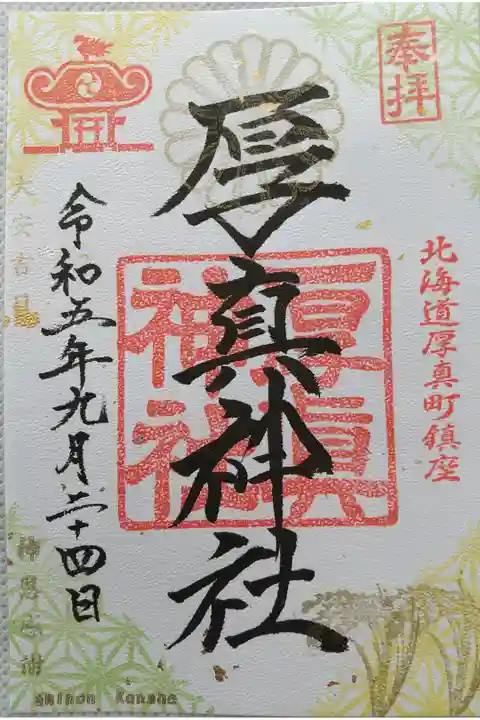 奉拝
北海道厚真町鎮座
厚真神社
厚眞
神社
令和五年九月二十四日
大安吉日
神恩感謝
Shinon Kansha